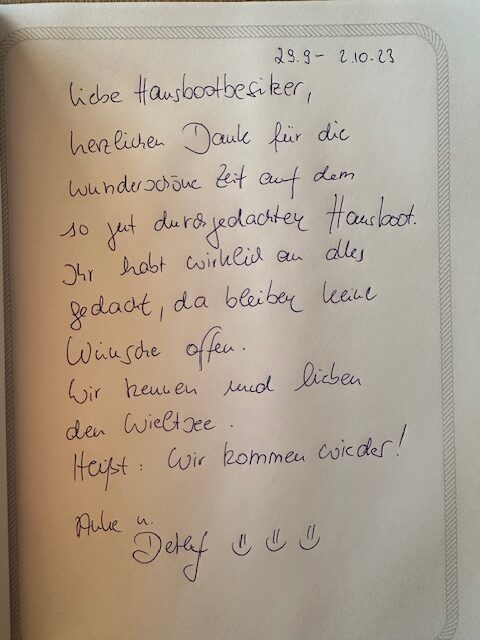 29.9 - 2.10.23
Liebe Hausbootbesitzer,
herzlichen Dank für die
wunderschöne Zeit auf dem
so gut durchgedachten Hausboot.
Ihr habt wirklich an alles
gedacht, da bleiben keine
Wünsche offen.
Wir kennen und lieben
den Wieltsee.
Heißt: Wir kommen wieder!
Anke u.
Detlef